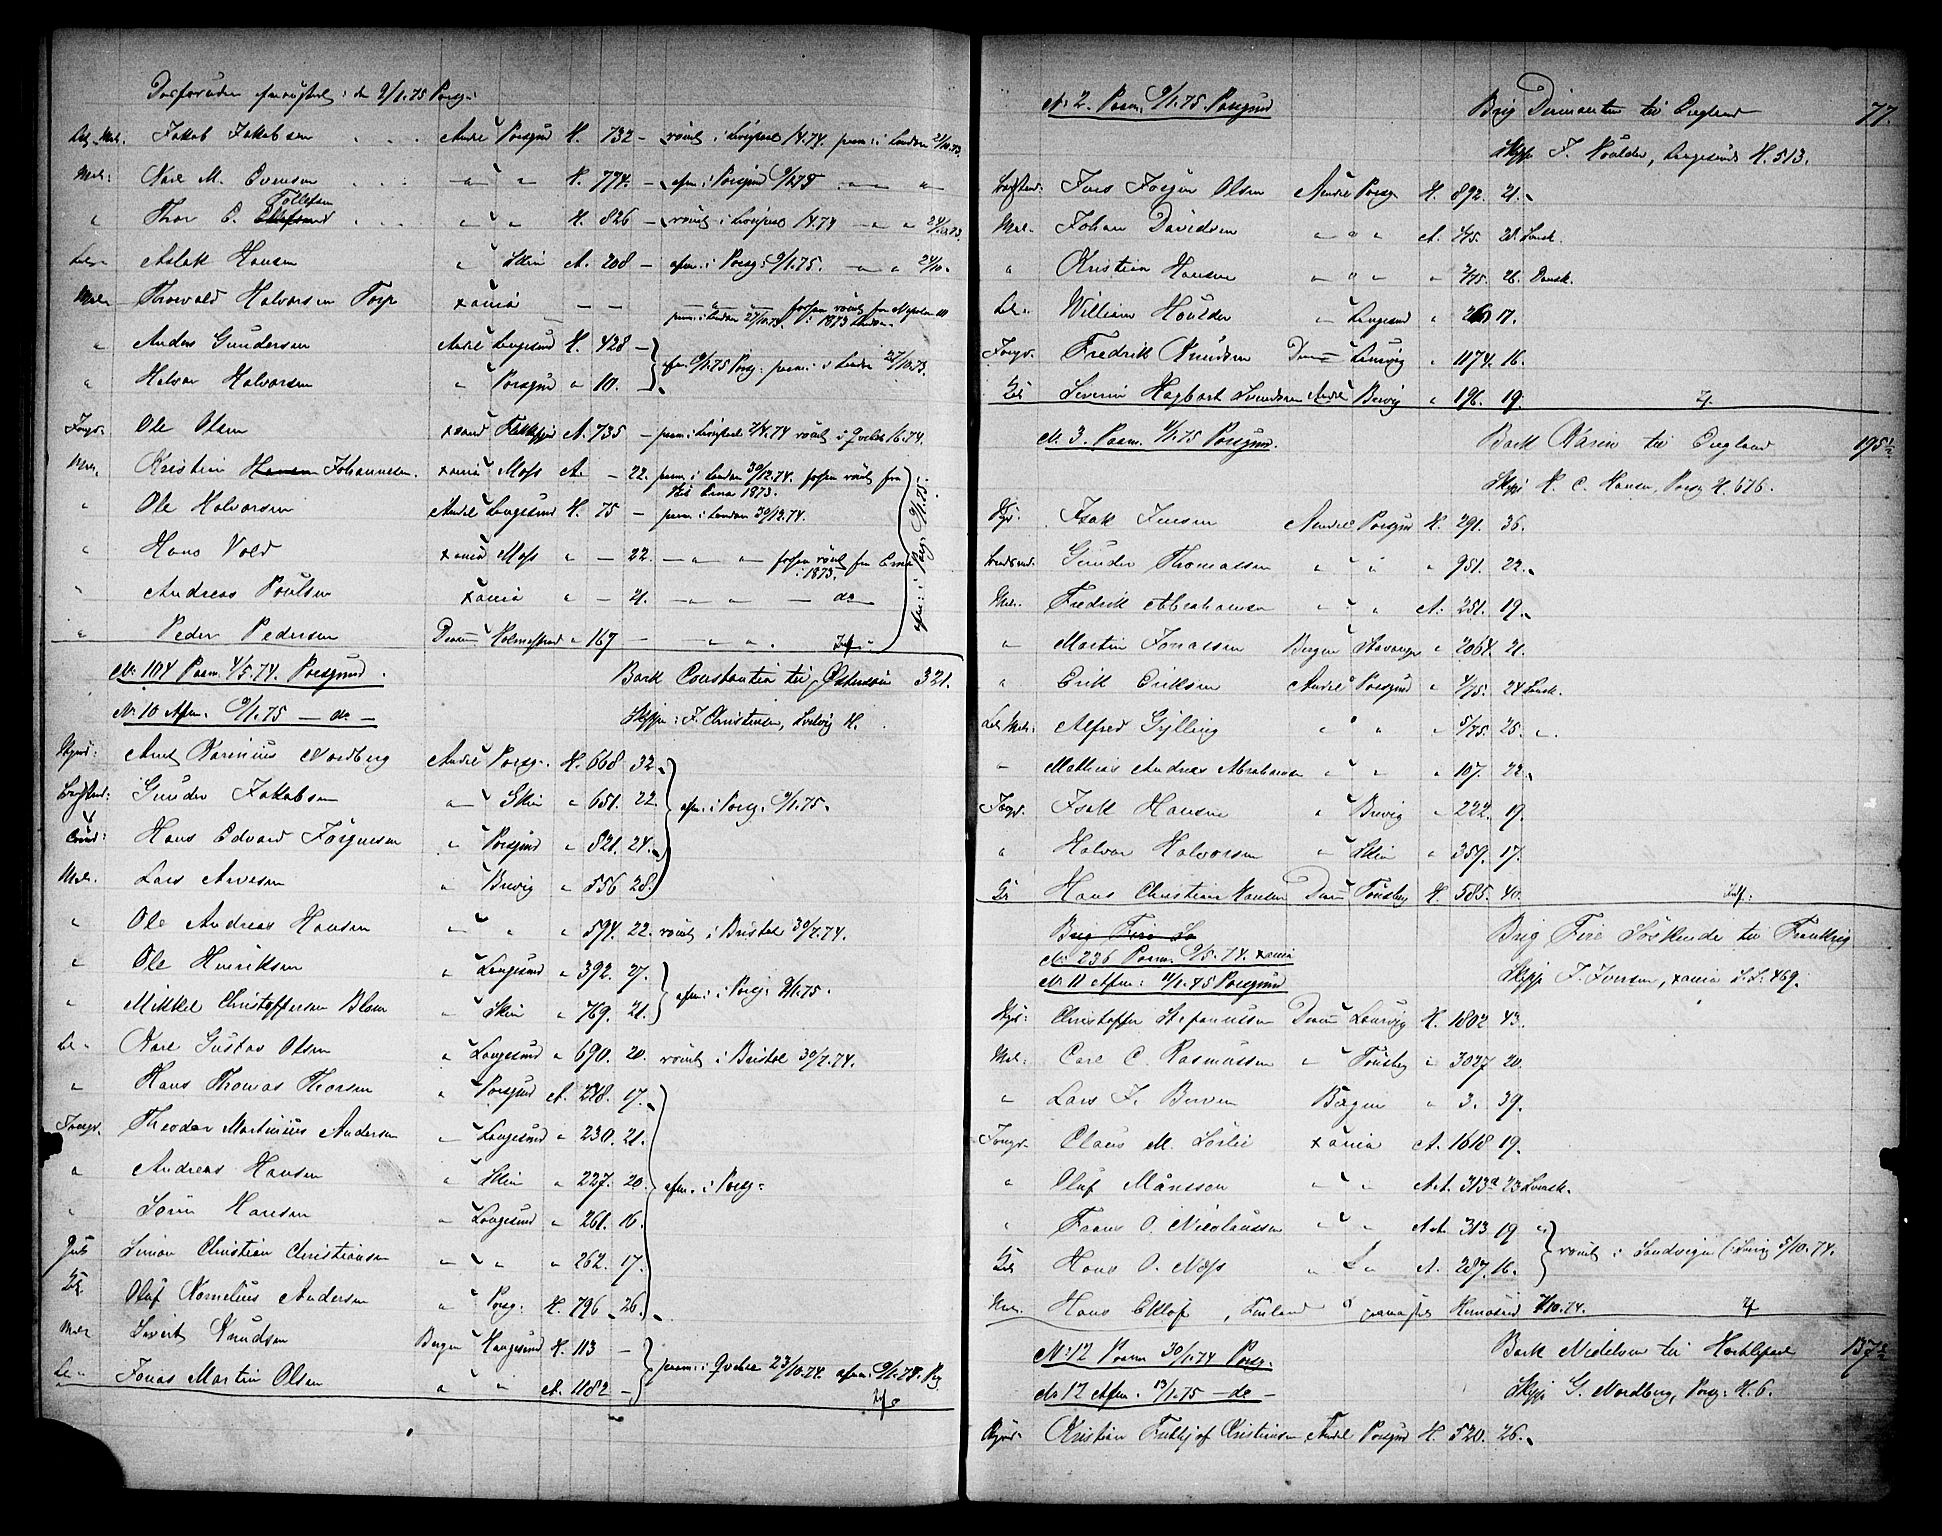 Desforuden afmønstret i den 9/1.75 Porsg:
Let. Mat. Jakob Jakobsen Andre Porsgrund H. 732 – rømt i Liverpool 1/4.74. paam. i London 24/10.73.
Mat: Karl M. Evensen „ „ H. 774. – afm. i Porsgrund 9/1.75 „ „
„ Thor O. Tollefsen „ „ H. 826 – rømt i Liverpool 1/4.74 „ „ 24/10.73.
Let. Aslak Hansen „ Skien A. 208 – afm. i Porsg: 9/1.75. „ „ 24/10.
Mat. Thorvald Halvorsen Torp xania – – paam. i London 27/10.73. forhen rømt fra Napoleon III i 1873 London
„ Anders Gundersen Andre Langesund H. 428 –
„ Halvor Halvorsen „ Porsgrund „ 10. – afm. 9/1.75 Porsg: paam. i London 27/10.73.
Jungm. Ole Olsen xsand Flekkefjord A. 735 – paam. i Liverpool 2/4.74 rømt i Quebec /6.74.
Mat. Kristian Johannesen xania Moss A. – 22. paam. i London 30/12.74. forhen rømt fra Erna 1873.
„ Ole Halvorsen Andre Langesund H. 75 – paam. i London 30/12.74.
„ Hans Vold xania Moss „ – 22. – „ „ forhen rømt fra Erna i 1873.
„ Andreas Poulsen xania „ – 21. – „ „ – do
„ Peder Pedersen Dram Holmestrand „ 167 – „ „
afm: i Porsg. 9/1.75.
No 104 Paam. 4/5.74. Porsgrund. Bark Constantia til Østersøen 321.
No 10 Afm. 9/1.75 – do – Skipper: J. Christensen, Larvig H.
Styrm: Arnt Karinius Nordberg Andre Porsg. H. 668 32.
Baadsmd: Gunder Jakobsen „ Skien „ 651. 22. afm. i Porsg. 9/1.75.
Hans Edvard Jørgensen „ Porsgrund „ 821. 24.
Mat. Lars Arvesen „ Brevig „ 556 28.
„ Ole Andreas Hansen „ „ „ 594. 22. rømt i Bristol 30/7.74.
„ Ole Henriksen „ Langesund „ 392. 27.
„ Mikkel Christoffersen Blom „ Skien „ 769. 21. afm. i Porsg: 9/1.75.
Le. „ Karl Gustav Olsen „ Langesund „ 690. 20. rømt i Bristol 30/7.74.
„ Hans Thomas Thorsen „ Porsgrund A. 228. 17.
Jungm. Theodor Martinius Andersen „ Langesund „ 230. 21.
„ Andreas Hansen „ Skien „ 227. 20. afm. i Porsg:
„ Søren Hansen „ Langesund „ 261. 16.
Gut Simon Christian Christiansen „ „ „ 262. 17.
Oluf Kornelius Andersen „ Porsg. H. 796. 26.
Mat Sivert Knudsen Bergen Haugesund H. 113 –
Le. „ Jonas Martin Olsen „ „ A. 1182 – paam: i Quebec 23/10.74. afm. 9/1.75. Pg
No 2. Paam. 9/1.75. Porsgrund Brig Diamanten til England 77.
Skipp. J. Houlder, Langesund H. 513.
Baadsmd: Jens Jørgen Olsen Andre Porsg. H. 892. 21.
Mat. Johan Davidsen „ „ „ A. 4/75. 28. Svensk.
„ Kristian Hansen „ „ „ „ 2/75. 26. Dansk.
Let. William Houlder „ Langesund „ 260 17.
Jungm. Fredrik Knudsen Dram Laurvig „ 1174. 16.
Severin Hagbart Svendsen Andre Brevig „ 196. 19.
No 3. Paam. 11/1.75 Porsgrund. Bark Karin til England 195 1/2
Skipp. H. C. Hansen, Porsg. H. 676.
Styr. Isak Jensen Andre Porsgrund H. 291. 36.
Gunder Thomassen „ „ „ 951. 22.
Mat. Fredrik Abrahamsen „ „ A. 251. 19.
„ Martin Jonassen Bergen Stavanger „ 2064. 21.
„ Erik Eriksen Andre Porsgrund „ 4/75. 24 Svensk.
Let. Mat. Alfred Gylling „ „ „ 5/75. 25. „
„ Mathias Andreas Abrahamsen „ „ „ 107. 22.
Jungm. Isak Hansen „ Brevig „ 222. 19.
„ Halvor Halvorsen „ Skien „ 359. 17.
Hans Christian Hansen Dram Tønsberg H. 585. 40.
Brig Fire Sø Brig Fire Søskende til Frankrig
No 236 Paam. 9/5.74. xania
No 11 Afm: 11/1.75 Porsgrund Skipp. J. Iversen, xania S.S. 469.
Styr. Christoffer Stefanussen Dram Laurvig H. 1802 43.
Mat. Carl C. Rasmussen „ Tønsberg „ 3027 20.
„ Lars J. Berven Bergen „ 3. 39.
Jungm. Claus M. Sørlie xania A. 1618 19.
„ Oluf Månsson „ „ A.A. 313a 23 Svensk.
„ Frans O. Nicolaussen „ „ A.A. 313 19 „
Hans O. Næss „ „ A. 287. 16. rømt i Sandvigen 5/10.74.
Mat. Hans Eklöf, Finland, paamønstret Hernøsand 7/10.74.
No 12 Paam 30/1.74 Porsg. Bark Nidelven til Hartlepool 137 1/2
No 12 Afm. 13/1.75 – do – Skipp. G. Nordberg, Porsg: H. 6.
Styrm. Kristian Fridthjof Kristiansen Andre Porsgrund H. 520. 26.